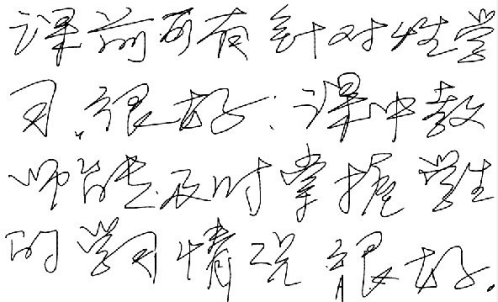 课前可有针对性学
习,很好;课中教
师能及时掌握学生
的学习情况很好.